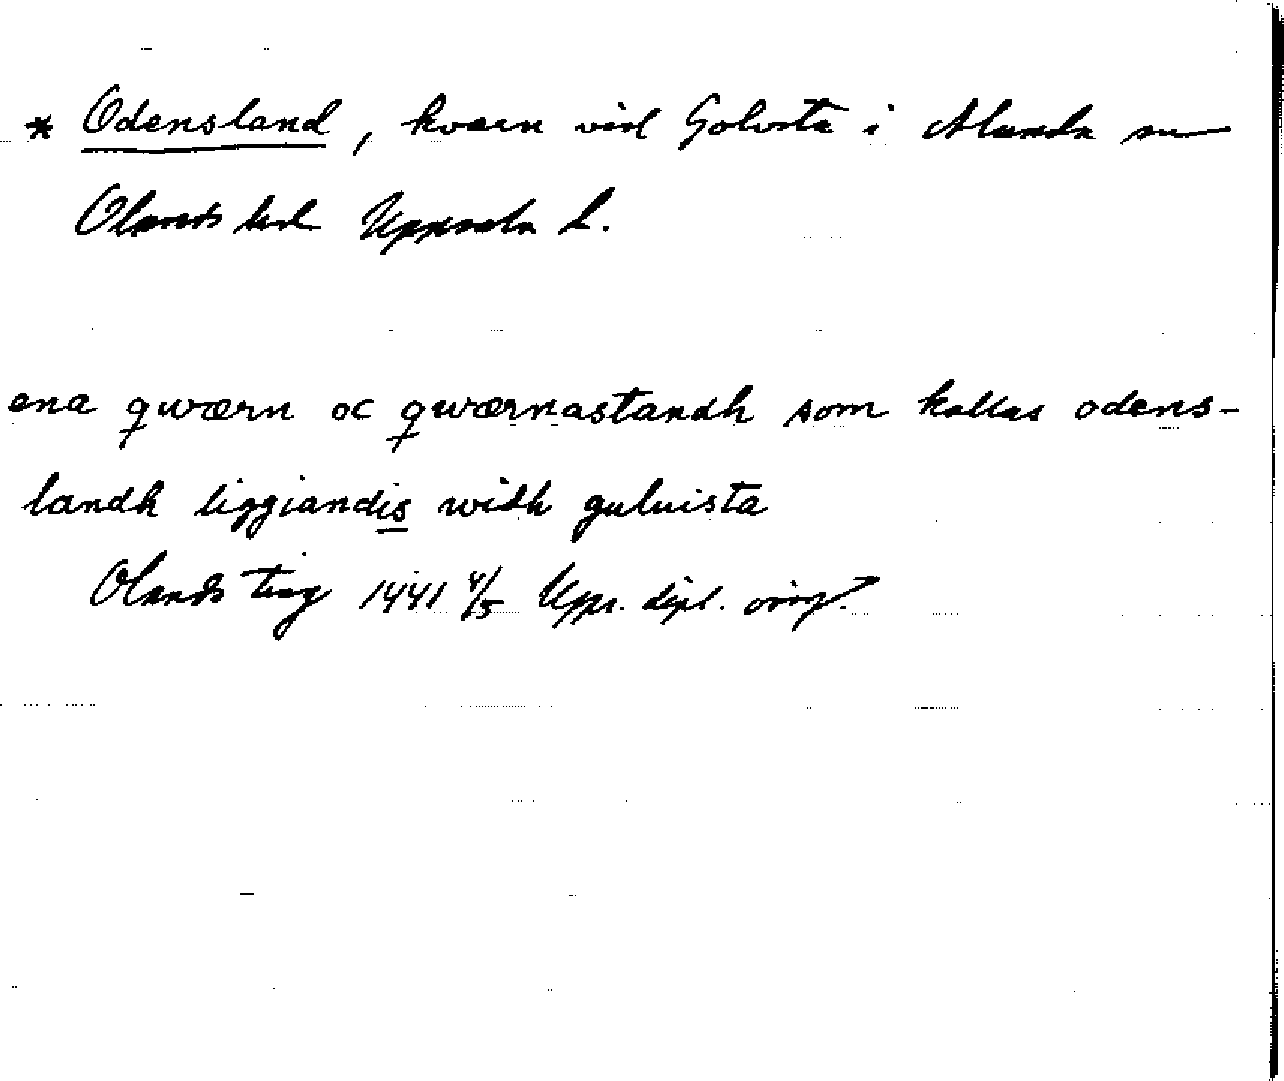 * Odensland, kvarn vid Golvsta i Alunda sn
Olands hd Uppsala l.
ena qwærn oc qwærnastandh som kallas odens-
landh liggiandis widh guluista
Olands ting 1441 4/5 Upps. dipl. orig.